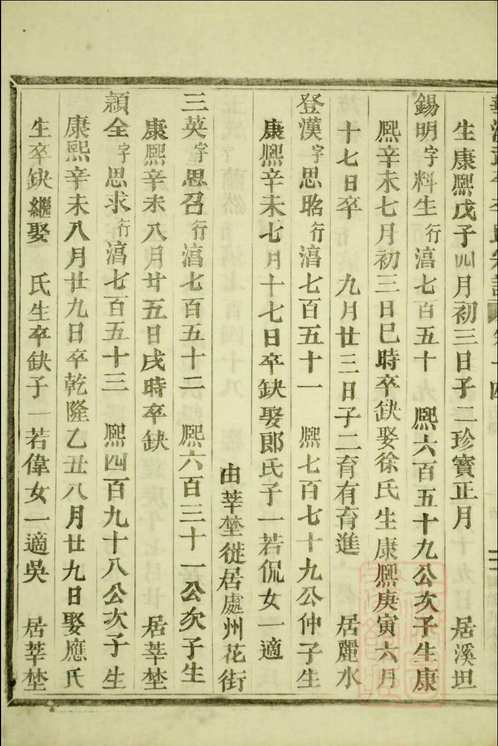 生康熈戊子四月初三日子二珍寳正月 居溪坦
錫明字料生行滈七百五十 熈六百五十九公次子生康
熈辛未七月初三日巳時卒缺娶徐氏生康熈庚寅六月
十七日卒 九月廿三日子二育有育進 居麗水
登漢字思晗行滈七百五十一 熈七百七十九公仲子生
康熈辛未七月十七日卒缺娶郎氏子一若侃女一適
由莘塟徙居處州花街
三英字思召行滈七百五十二 熈六百三十一公次子生
康熈辛未八月廿五日戌時卒缺 居莘塟
頴全字思求行滈七百五十三 熈四百九十八公次子生
康熙辛未八月廿九日卒乾隆乙丑八月廿九日娶應氏
生卒缺繼娶 氏生卒缺子一若偉女一適吳 居莘塟